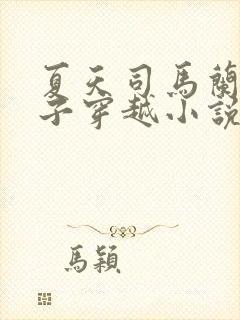 夏天司馬蘭
子穿越小說
馬穎